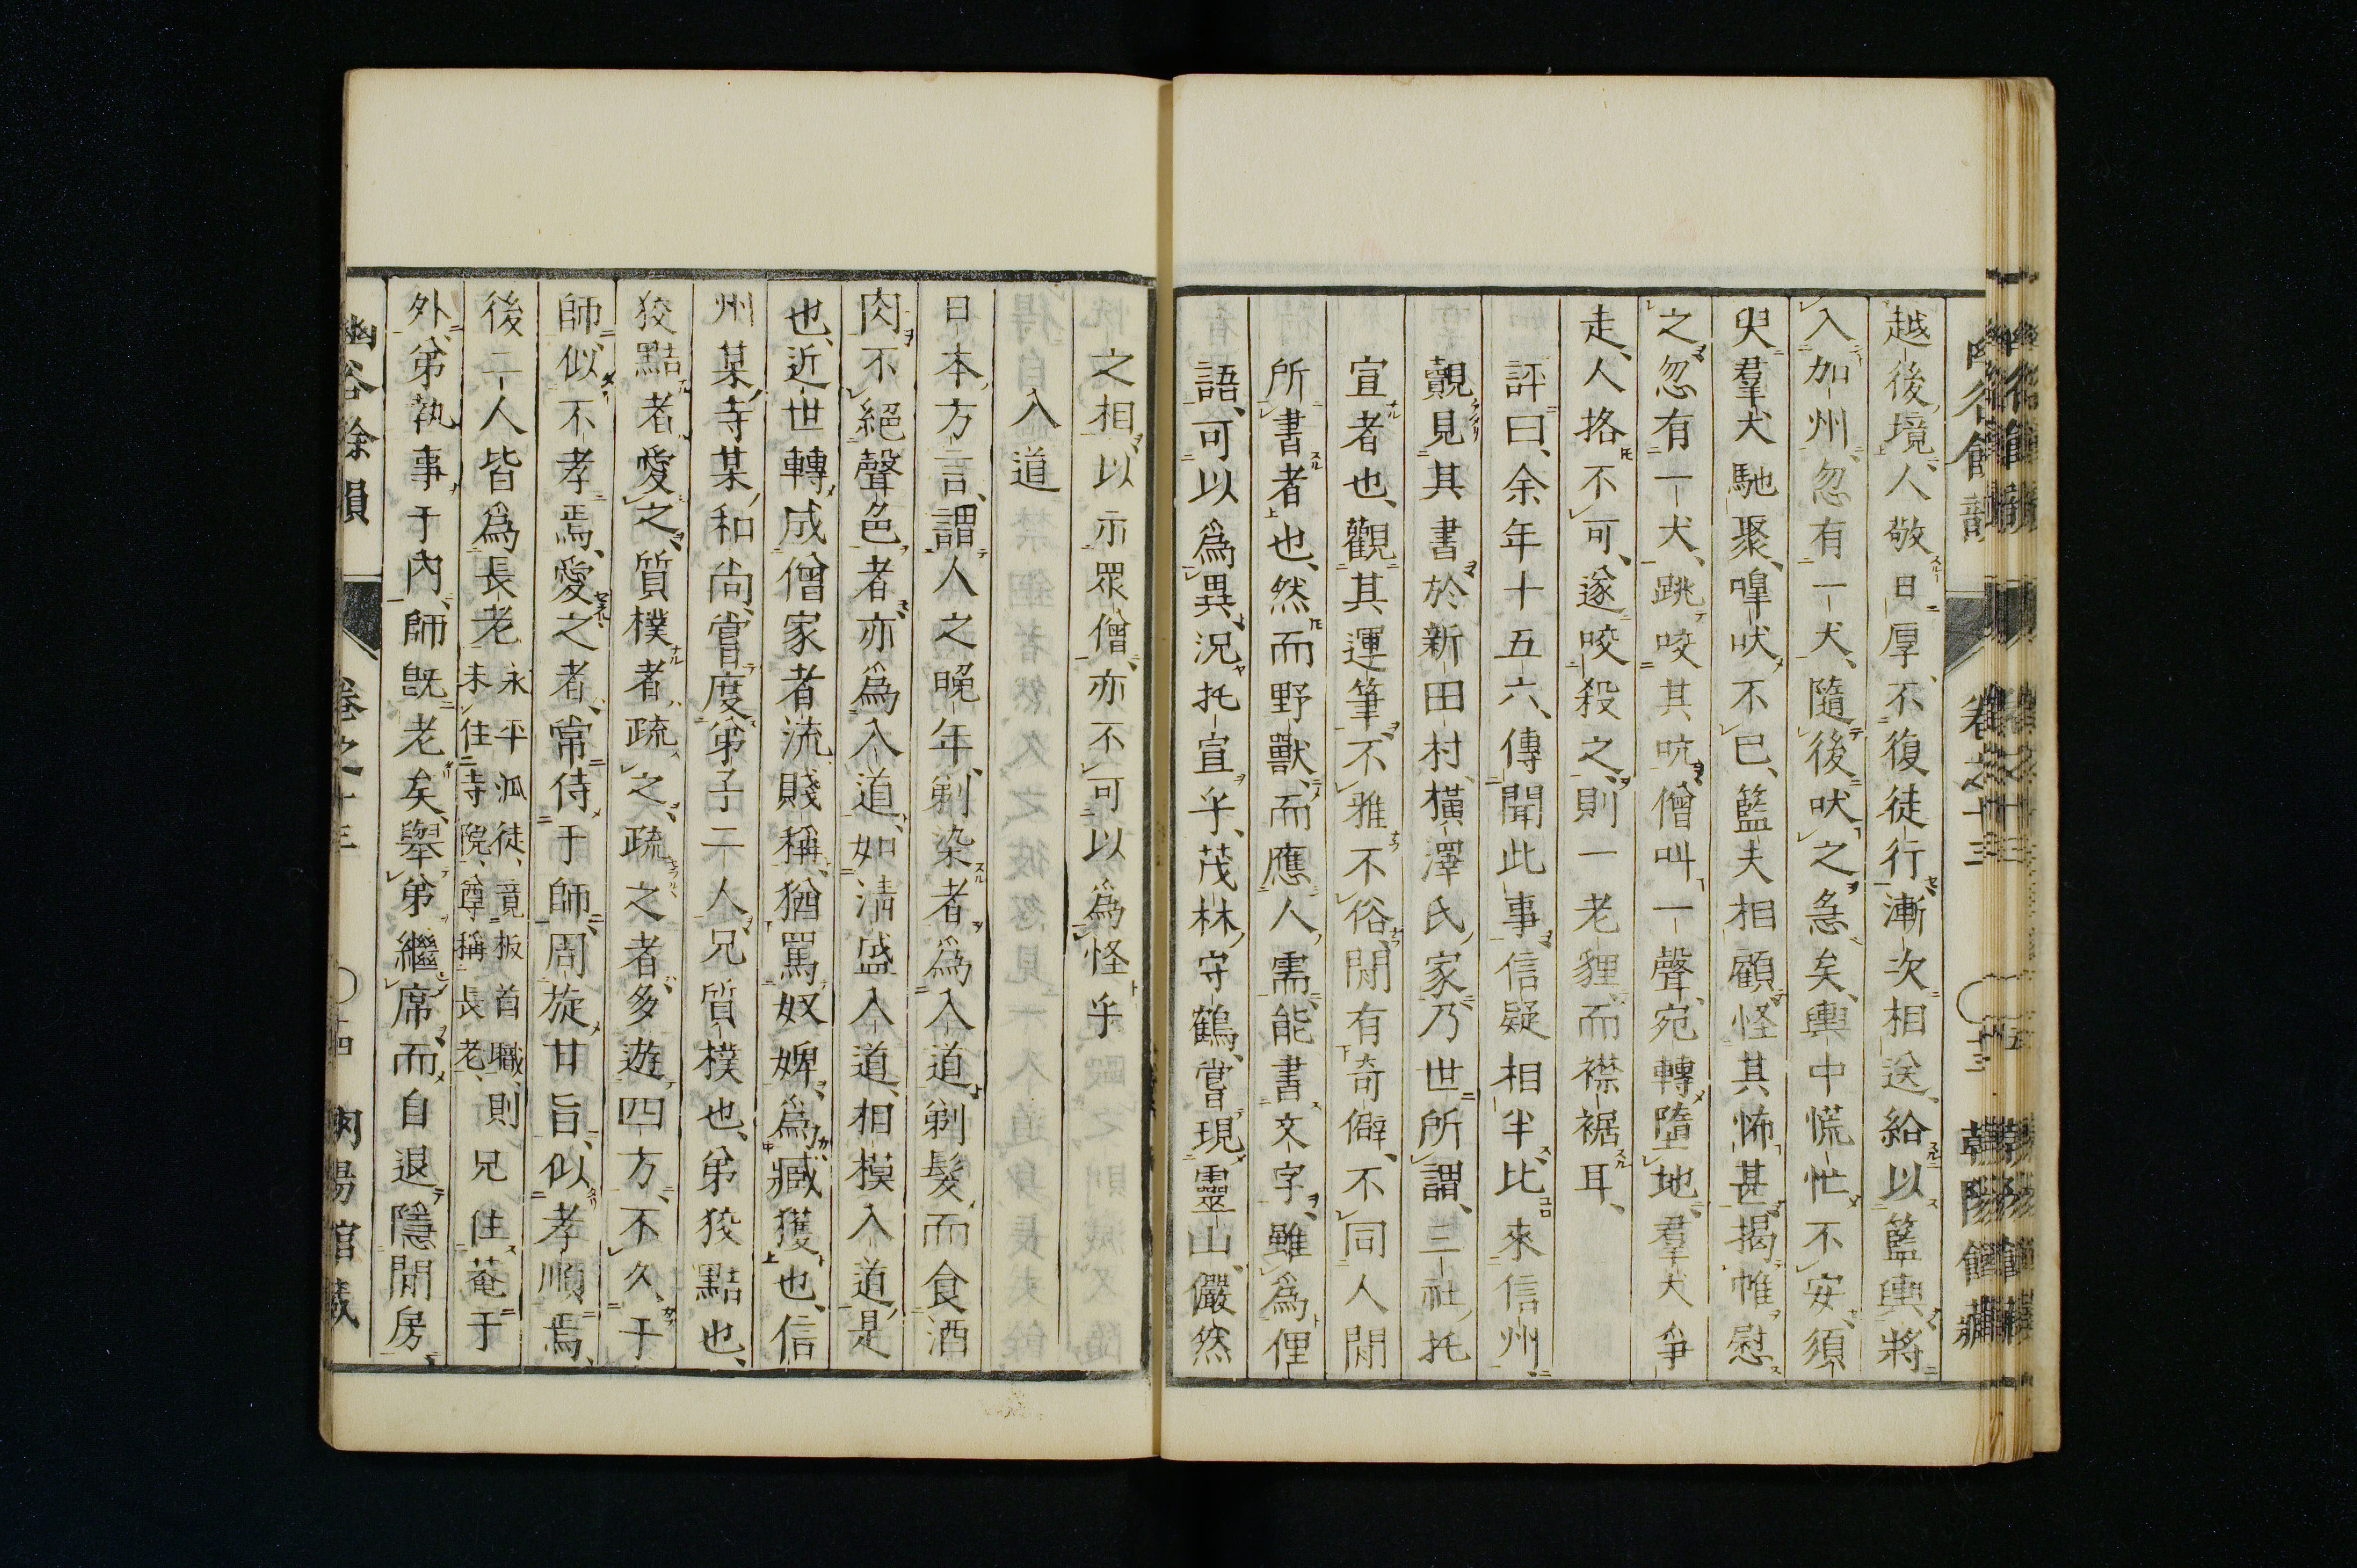 越後境人敬日厚不復徒行漸次相送給以籃輿將
入加州忽有一犬隨後吠之急矣輿中慌忙不安須
臾羣犬馳聚嘷吠不已籃夫相顧怪其怖甚揭帷慰
之忽有一犬跳咬其吭僧叫一聲宛轉墮地羣犬爭
走人挌不可遂咬殺之則一老貍而襟裾耳
評曰余年十五六傳聞此事信疑相半比來信州
覿見其書於新田村橫澤氏家乃世所謂三社托
宣者也觀其運筆不雅不俗間有奇僻不同人間
所書者也然而野獸而應人需能書文字雖爲俚
語可以爲異況托宣乎茂林守鶴嘗現靈山儼然
之相以示眾僧亦不可以爲怪乎
入道
日本方言謂人之晚年剃染者爲入道剃髮而食酒
肉不絕聲色者亦爲入道如淸盛入道相模入道是
也近世轉成僧家者流賤稱猶罵奴婢爲臧獲也信
州某寺某和尙嘗度弟子二人兄質樸也弟狡黠也
狡黠者愛之質樸者疏之疏之者多遊四方不久于
師似不孝焉愛之者常侍于師周旋甘旨似孝順焉
後二人皆爲長老永平派徒竟板首職則未住寺院尊稱長老兄住菴于
外弟執事于內師旣老矣舉弟繼席而自退隱閒房
幽谷餘韻 卷之十三 ○十四 朝陽館藏